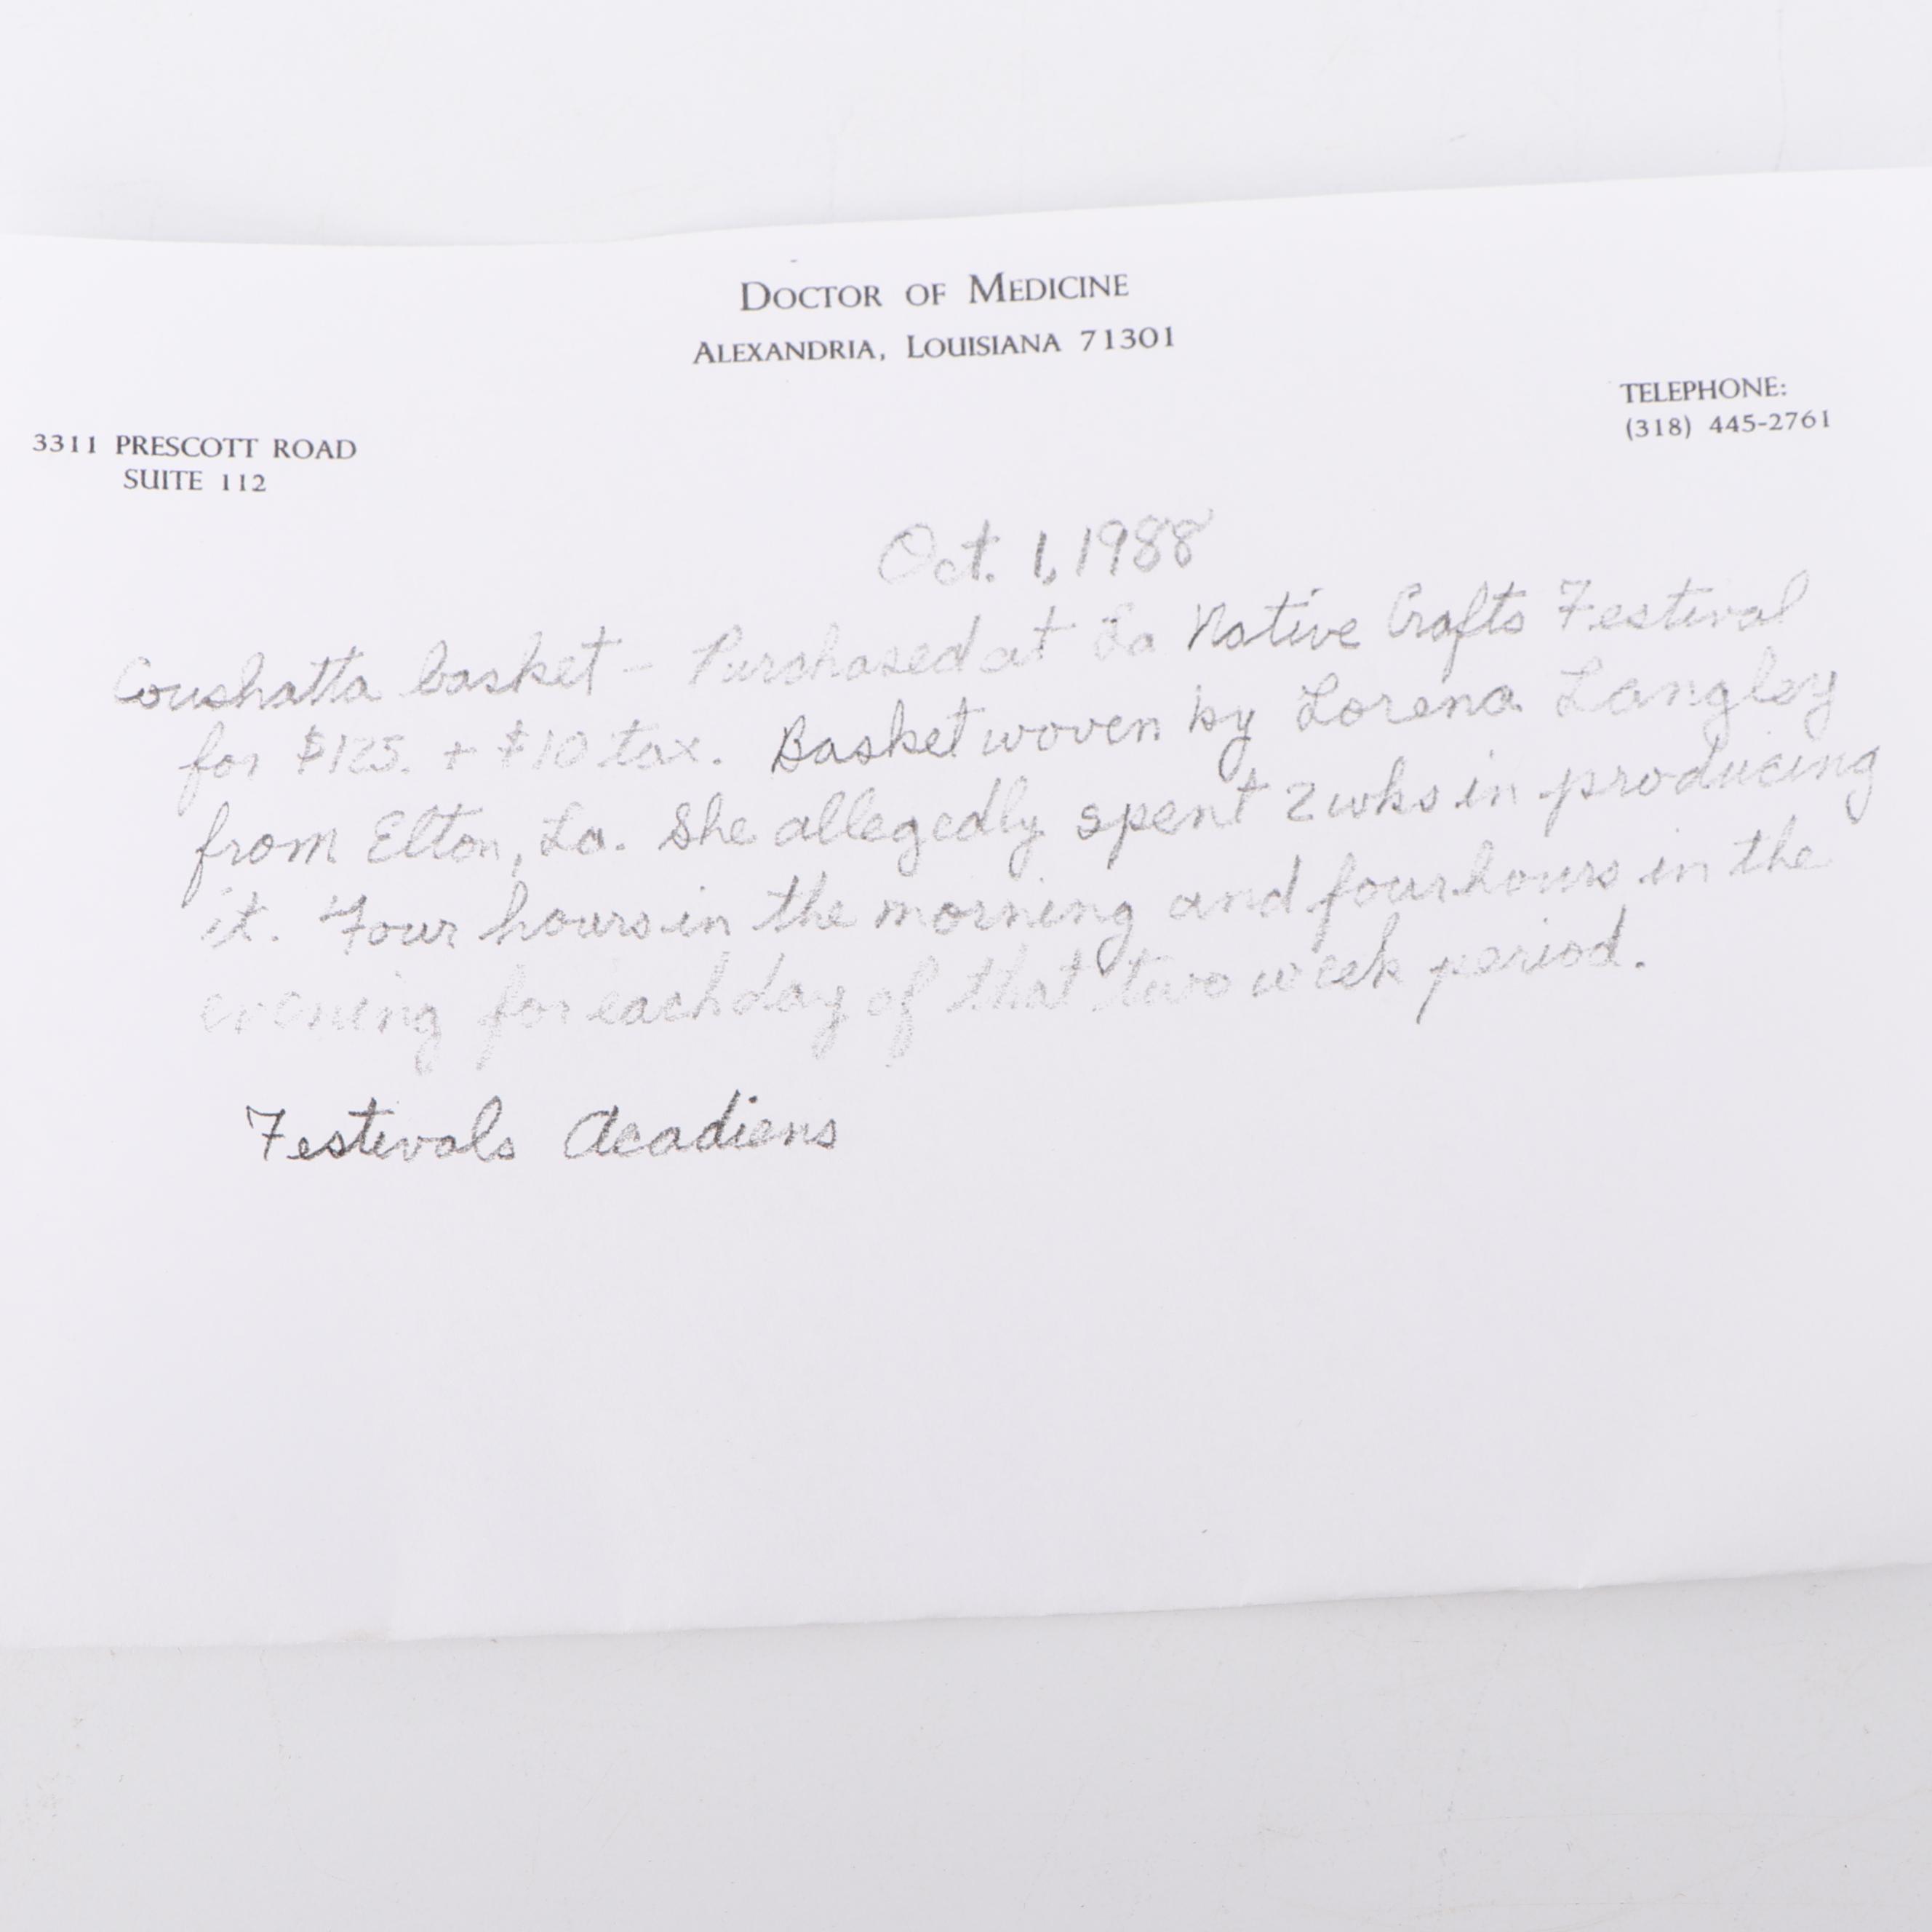 DOCTOR OF MEDICINE
ALEXANDRIA, LOUISIANA 71301
TELEPHONE:
(318) 445-2761
3311 PRESCOTT ROAD
SUITE 112
Oct. 1, 1988
Coushatta basket - Purchased at La Native Crafts Festival
for $125. + $10 tax. Basket woven by Lorena Langley
from Elton, La. She allegedly spent 2 wks in producing
it. Four hours in the morning and four hours in the
evening for each day of that two week period.
Festivals Acadiens